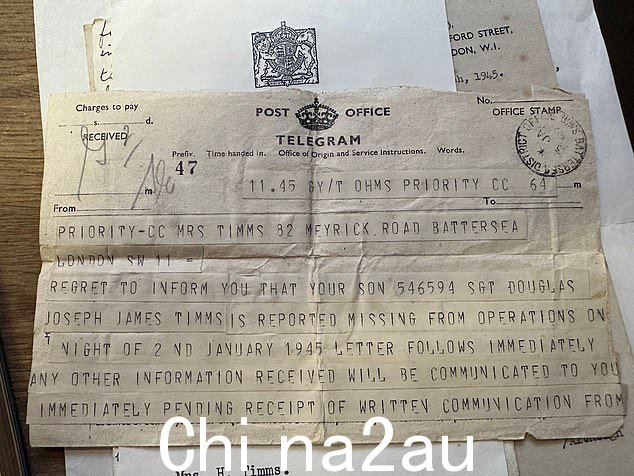 FORD STREET,
DON, W.I.
h, 1945.
Charges to pay
s. d.
RECEIVED
POST OFFICE
TELEGRAM
No.
OFFICE STAMP
Prefix. Time handed in. Office of Origin and Service Instructions. Words.
47
m
11.45 GY/T OHMS PRIORITY CC 64 m
From
To
PRIORITY-CC MRS TIMMS 82 MEYRICK ROAD BATTERSEA
LONDON SW 11 =
REGRET TO INFORM YOU THAT YOUR SON 546594 SGT DOUGLAS
JOSEPH JAMES TIMMS IS REPORTED MISSING FROM OPERATIONS ON
T NIGHT OF 2 ND JANUARY 1945 LETTER FOLLOWS IMMEDIATELY
ANY OTHER INFORMATION RECEIVED WILL BE COMMUNICATED TO YOU
IMMEDIATELY PENDING RECEIPT OF WRITTEN COMMUNICATION FROM
Chi na2au
Mrs H. Timms.